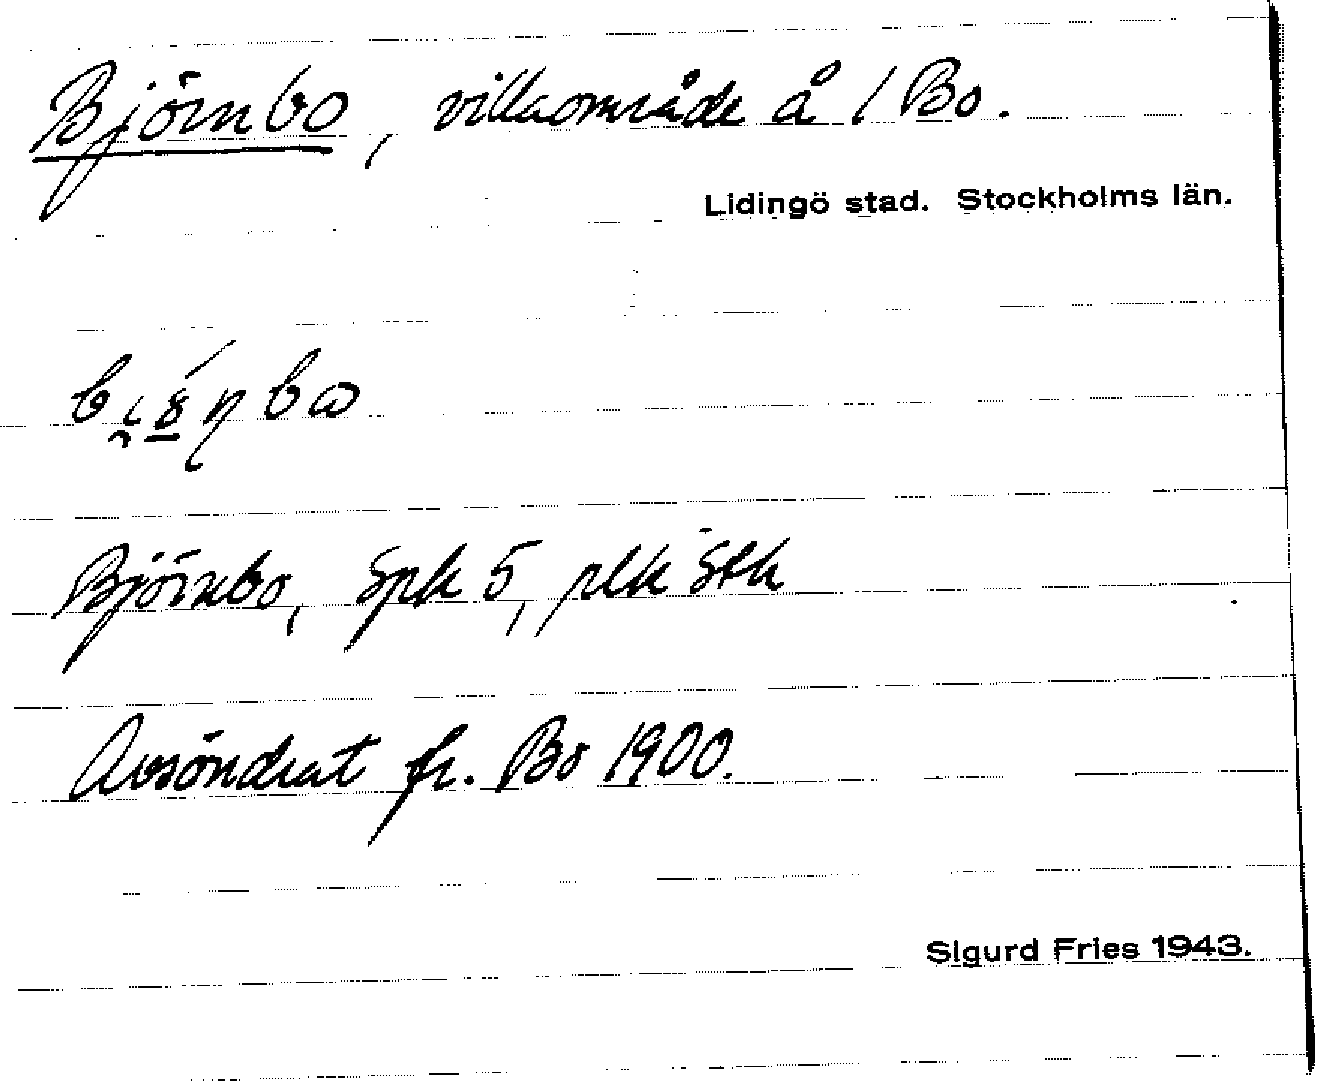 Björnbo, villaområde å 1 Bo.
Lidingö stad. Stockholms län.
Björnbo, Spk 5, plk Stk
Avsöndrat fr. Bo 1900.
Sigurd Fries 1943.